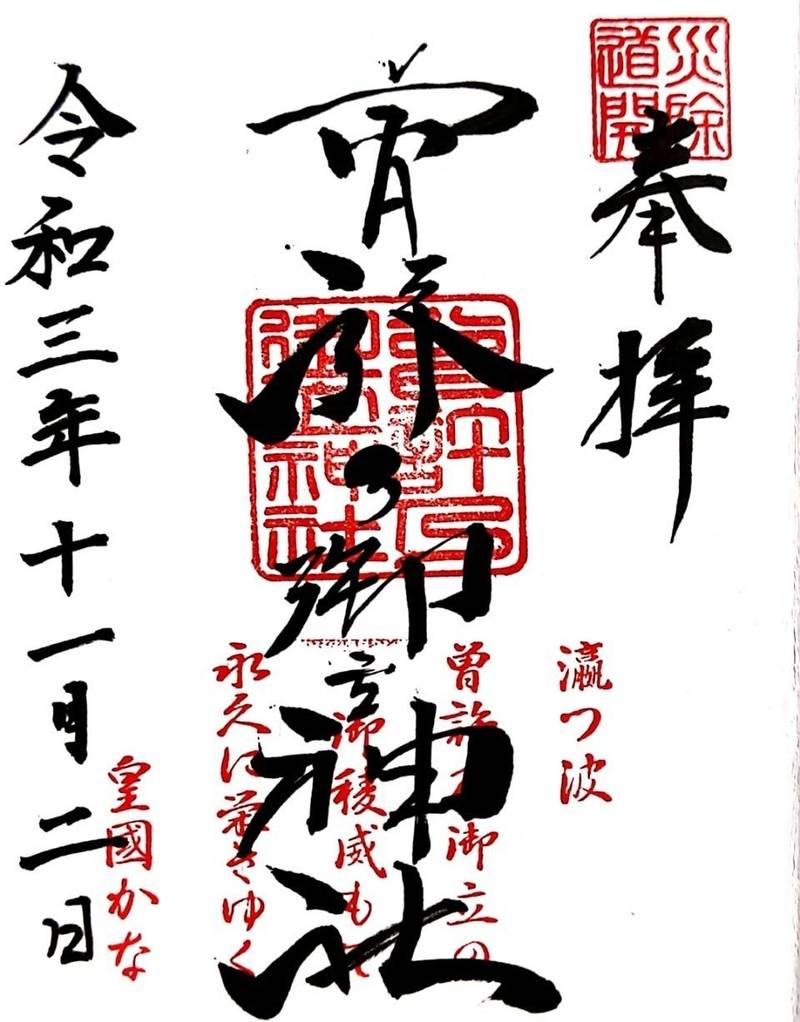 災除
道開
奉拝
曽許乃御立神社
曽許乃
御立神社
瀛つ波
曽許乃御立の
御稜威もて
永久に榮えゆく
皇國かな
令和三年十一月二日